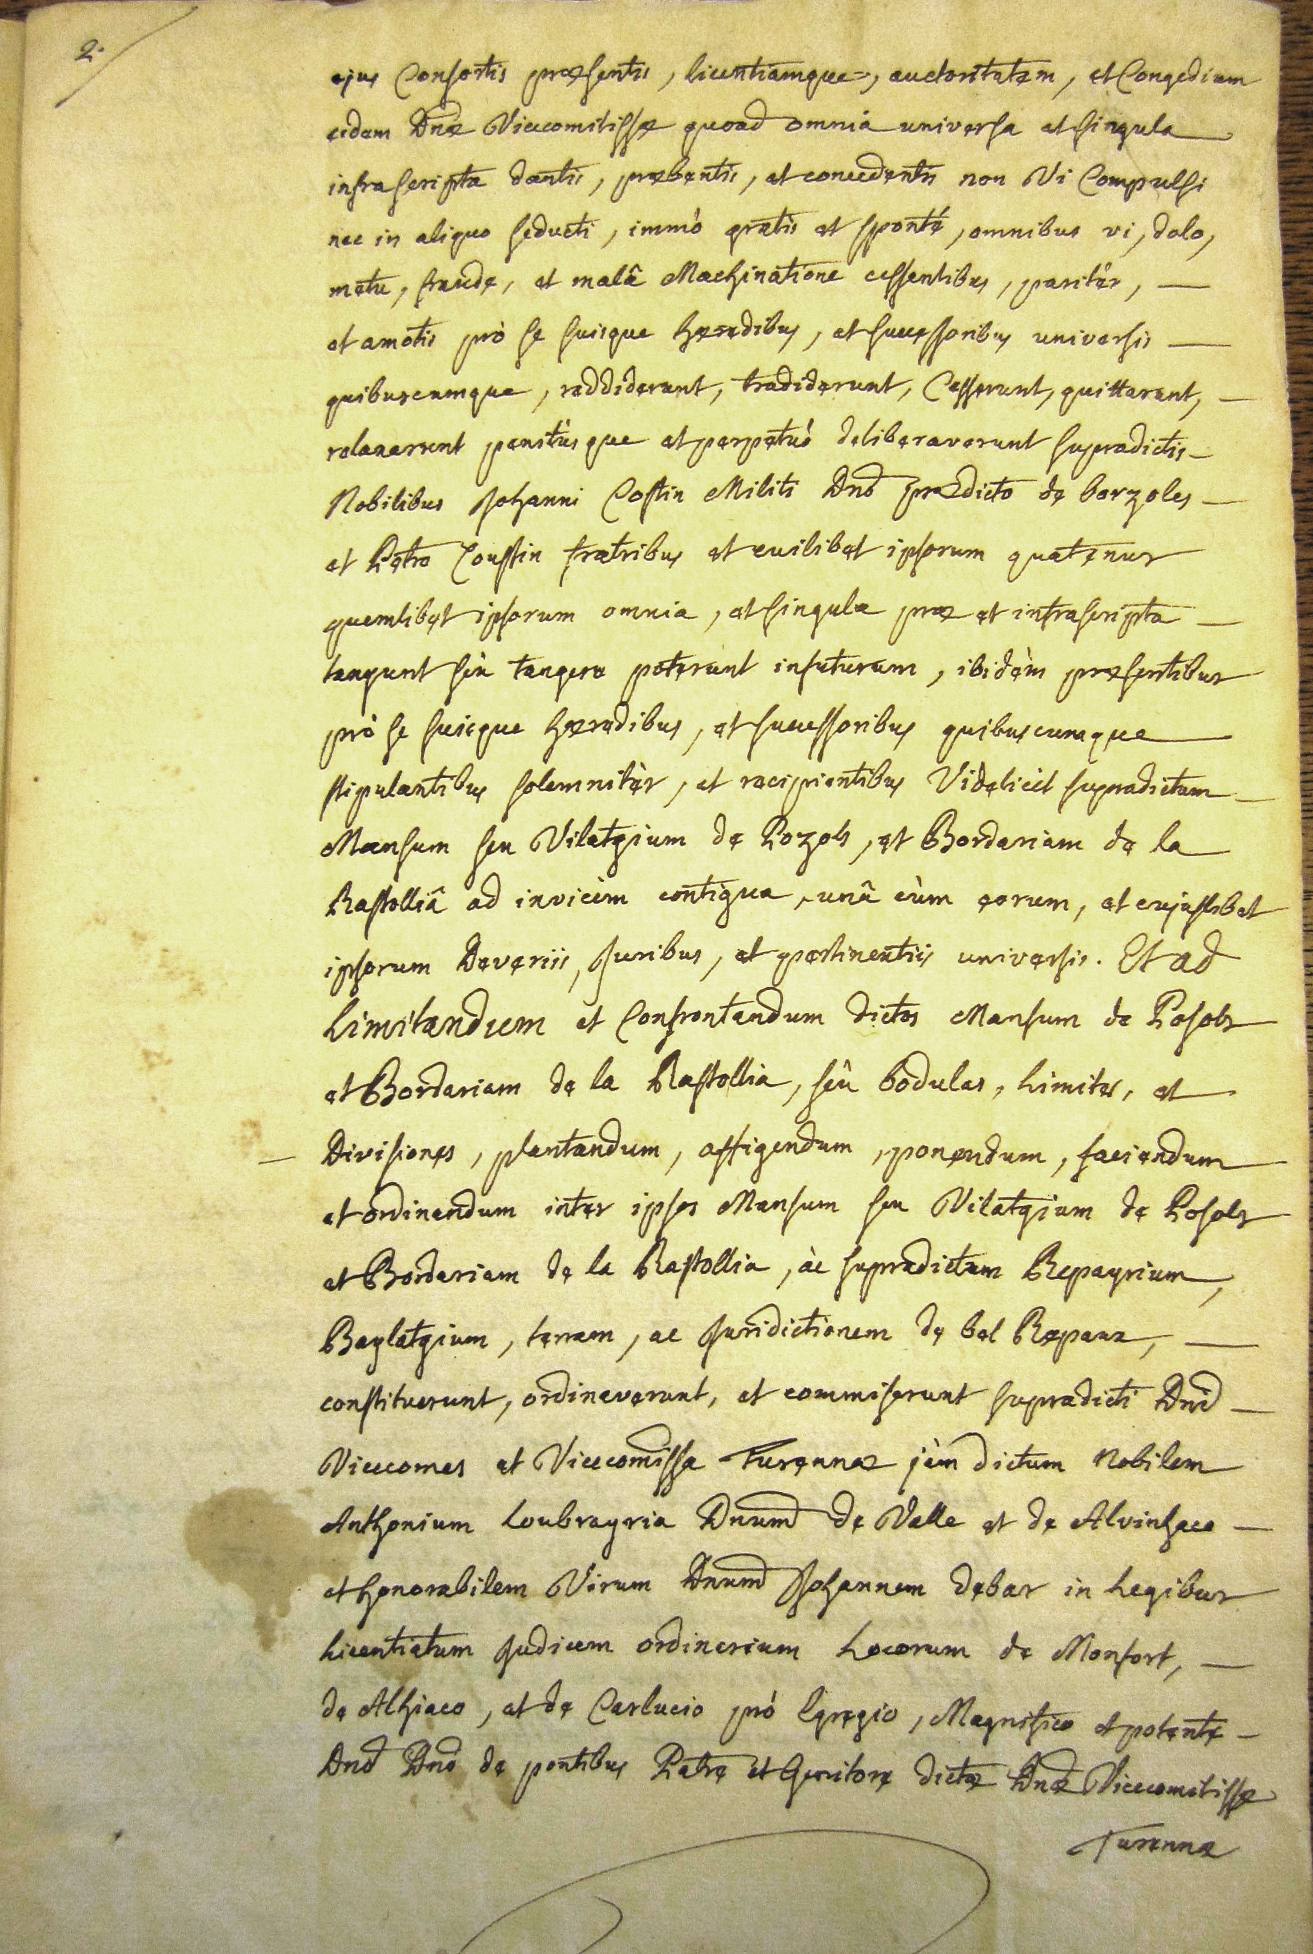 2.
ejus Consortis præsentis, licentiamque, auctoritatem, et Congedium
eidem Dnæ Vicecomitissæ quoad omnia universa et singula
infrascripta dantis, præbentis, et concedentis non Vi Compulsi
nec in aliquo seducti, immò gratis et spontè, omnibus vi, dolo,
metu, fraude, et malâ Machinatione cessentibus, paritèr, —
et amotis prò se suisque hæredibus, et successoribus universis —
quibuscumque, reddiderunt, tradiderunt, Cesserunt, quittarunt, —
relaxarunt penitùsque et perpetuò deliberaverunt supradictis —
Nobilibus Johanni Costin Militi Dnô prædicto de borzoles —
et Petro Coustin fratribus et cuilibet ipsorum quatenus
quemlibet ipsorum omnia, et singula præ et infrascripta —
tangunt seù tangere poterunt infuturum, ibidèm præsentibus
prò se suisque hæredibus, et successoribus quibuscumque
stipulantibus solemnitèr, et recipientibus Videlicèt supradictum —
Mansum seu Vilatgium de Pozols, et Bordariam de la
Rastolliâ ad invicèm contigua, unâ cùm eorum, et cujuslibet
ipsorum Deveriis, Juribus, et pertinentiis universis. Et ad
Limitandum et Confrontandum dictos Mansum de Posols
et Bordariam de la Rastollia, seù bodulas, Limites, et
— Divisiones, plantandum, affigendum, ponendum, faciendum
et ordinandum inter ipsos Mansum seu Vilatgium de Posols
et Bordariam de la Rastollia, àc supradictum Repayrium,
Baylatgium, terram, ac Juridictionem de bel Repaux, —
constituerunt, ordinaverunt, et commiserunt supradicti Dnî —
Vicecomes et Vicecomissa Turennæ jàm dictum Nobilem
Anthonium Loubrayria Dnum de Valle et de Alvinhaco —
et honorabilem Virum Dnum Johannem debar in Legibus
Licentiatum Judicem ordinarium Locorum de Monfort, —
de Alhiaco, et de Carlucio prò Egregio, Magnifico et potente —
Dnô Dnô de pontibus Patre et Genitore dictæ Dnæ Vicecomitissæ
Turennæ